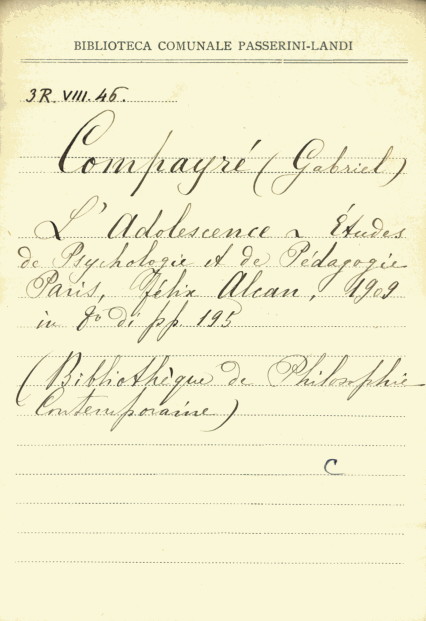 BIBLIOTECA COMUNALE PASSERINI-LANDI
3R. VIII. 46.
Compayré (Gabriel)
L'Adolescence ~ Études
de Psychologie et de Pédagogie
Paris, Félix Alcan, 1909
in 8º di pp 195
(Bibliothèque de Philosophie
Contemporaine)
C